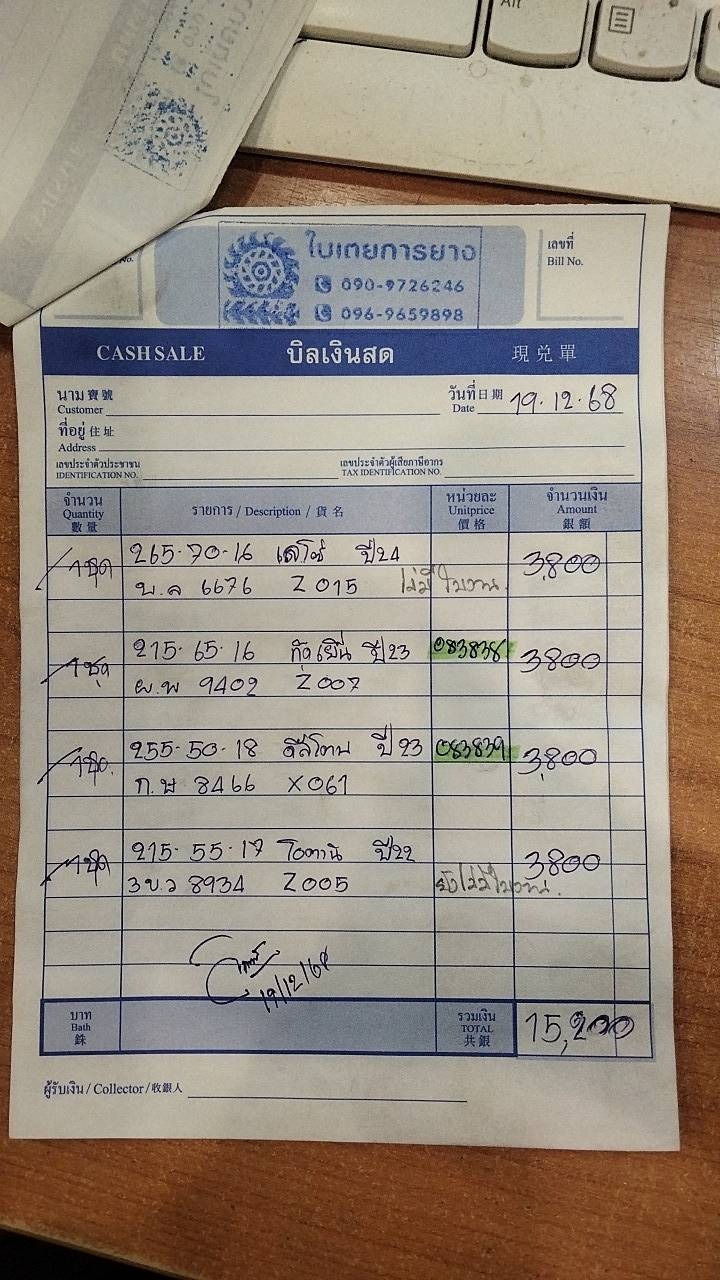 Alt
ใบเตยการยาง
090-9726246
096-9659898
No.
เลขที่
Bill No.
CASH SALE บิลเงินสด 現兌單
นาม 寶號
Customer
วันที่ 日期
Date 19.12.68
ที่อยู่ 住址
Address
เลขประจำตัวประชาชน
IDENTIFICATION NO.
เลขประจำตัวผู้เสียภาษีอากร
TAX IDENTIFICATION NO.
จำนวน
Quantity
數量
รายการ / Description / 貨名
หน่วยละ
Unitprice
價格
จำนวนเงิน
Amount
銀額
1ชุด 265-70-16 ปี24 3,800
6676 Z015 ไม่มีใบงาน
1ชุด 215-65-16 ปี23 083838 3800
ผ.พ 9402 Z007
1ชุด. 255-50-18 ปี23 083839 3,800
8466 X061
1ชุด 215-55-17 โอตานิ ปี22 3800
3ข.ว 8934 Z005 ยังไม่มีใบงาน.
19/12/68
บาท
Bath
銖
รวมเงิน
TOTAL
共銀
15,200
ผู้รับเงิน / Collector / 收銀人